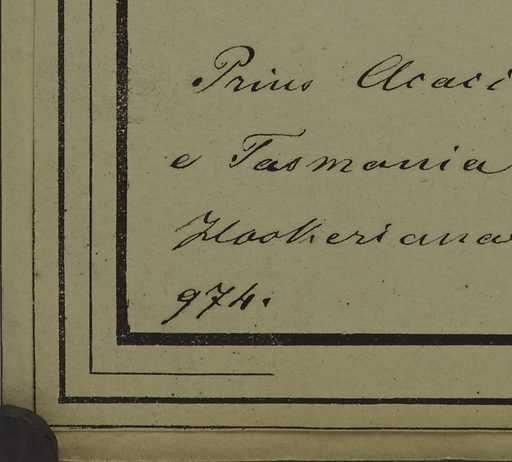 Prius Acaci
e Tasmania
Hookeriana
974.